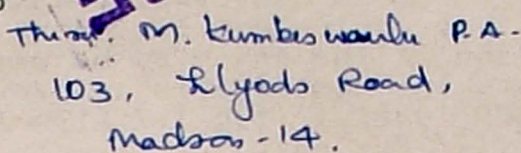 Thiru. M. Kumbeswarulu P.A.
103, Llyods Road,
Madras-14.